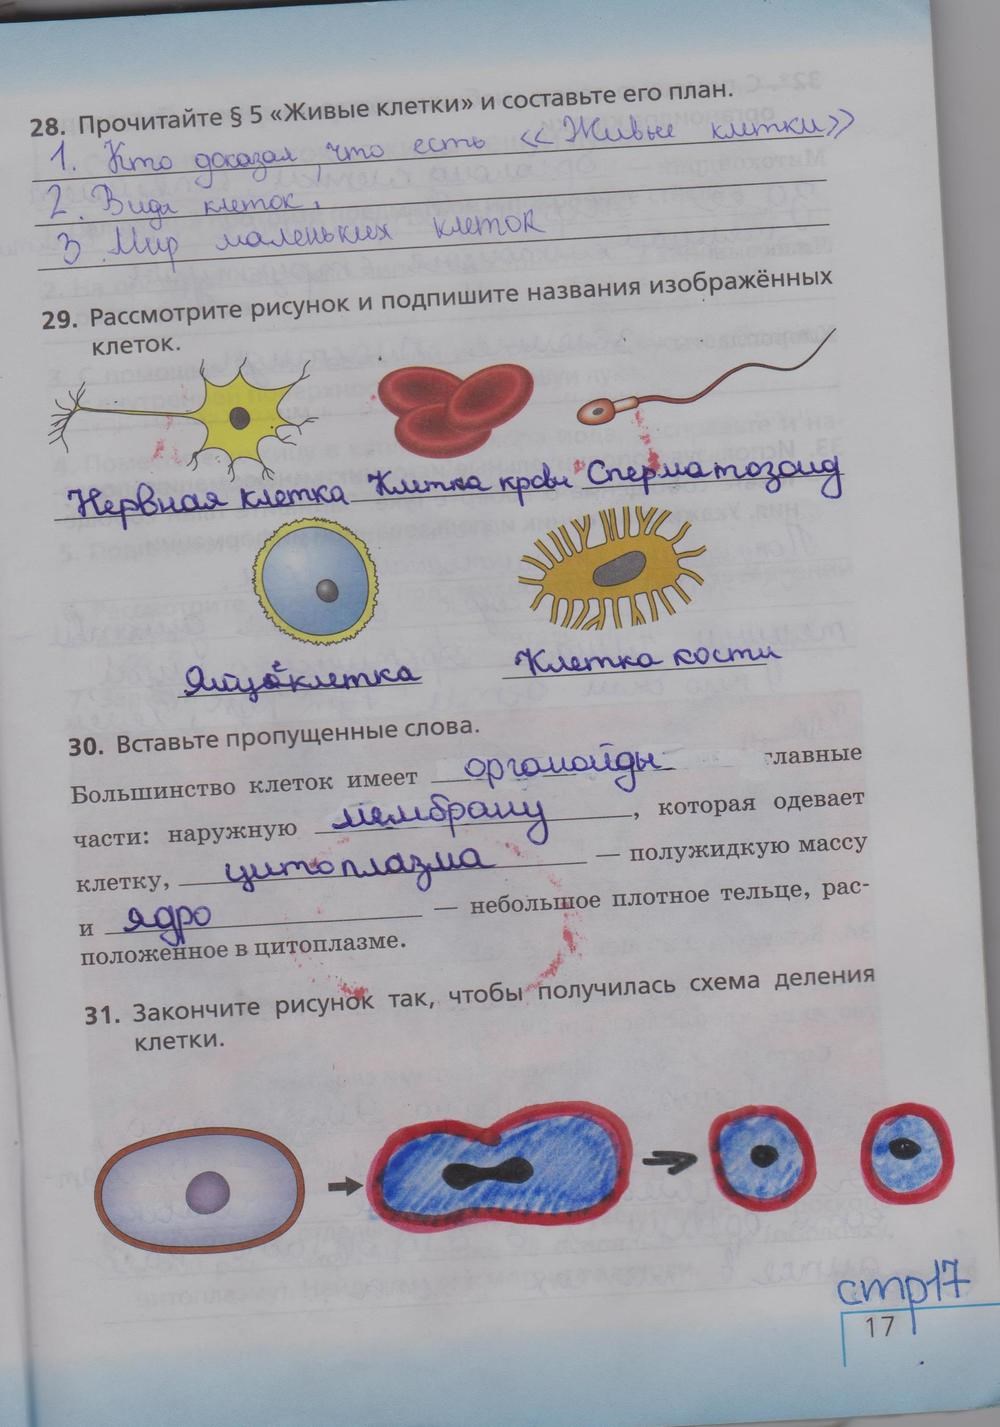 28. Прочитайте § 5 «Живые клетки» и составьте его план.
1. Кто доказал, что есть «Живые клетки»
2. Виды клеток.
3 Мир маленьких клеток
29. Рассмотрите рисунок и подпишите названия изображённых
клеток.
Нервная клетка Клетка крови Сперматозоид
Яйцеклетка Клетка кости
30. Вставьте пропущенные слова.
Большинство клеток имеет органойды главные
части: наружную мембрану, которая одевает
клетку, цитоплазма — полужидкую массу
и ядро — небольшое плотное тельце, рас-
положенное в цитоплазме.
31. Закончите рисунок так, чтобы получилась схема деления
клетки.
стр17
17